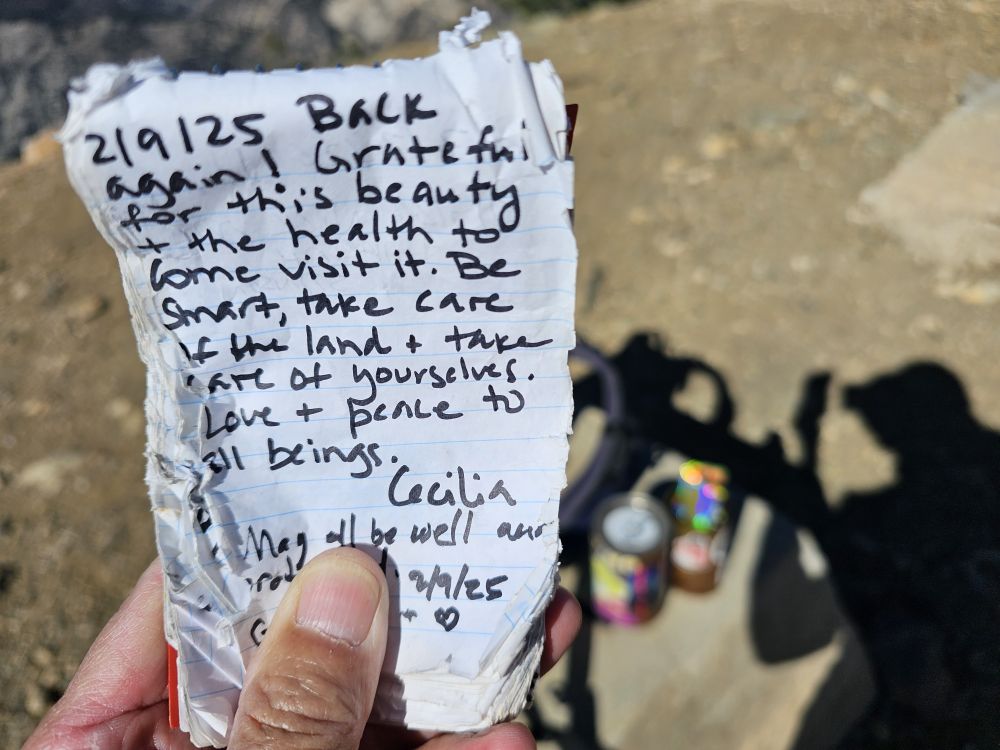 2/9/25 Back
again! Grateful
for this beauty
+ the health to
come visit it. Be
smart, take care
of the land + take
care of yourselves.
Love + peace to
all beings.
Cecilia
May all be well and
2/9/25
+ ♡